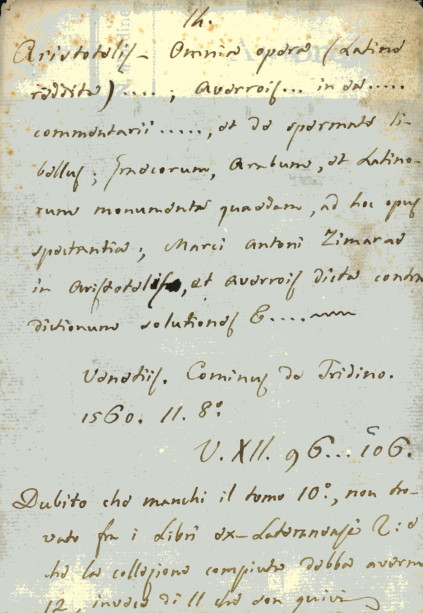 14.
Aristotelis - Omnia opera (Latine
reddita) ....; Averrois... in ea.....
commentarii....., et de spermate li-
bellus; Graecorum, Arabum, et Latino-
rum monumenta quaedam, ad hoc opus
spectantia; Marci Antoni Zimarae
in Aristotelis, et Averrois dicta contra
dictionum solutiones &....
Venetiis. Cominus de Tridino.
1560. 11. 8.º
V. XII. 96... 106.
Dubito che manchi il tomo 10º, non tro-
vato fra i Libri ex-Lateranensi
che la collezione compiuta debba averne
12, invece di 11 che son quivi